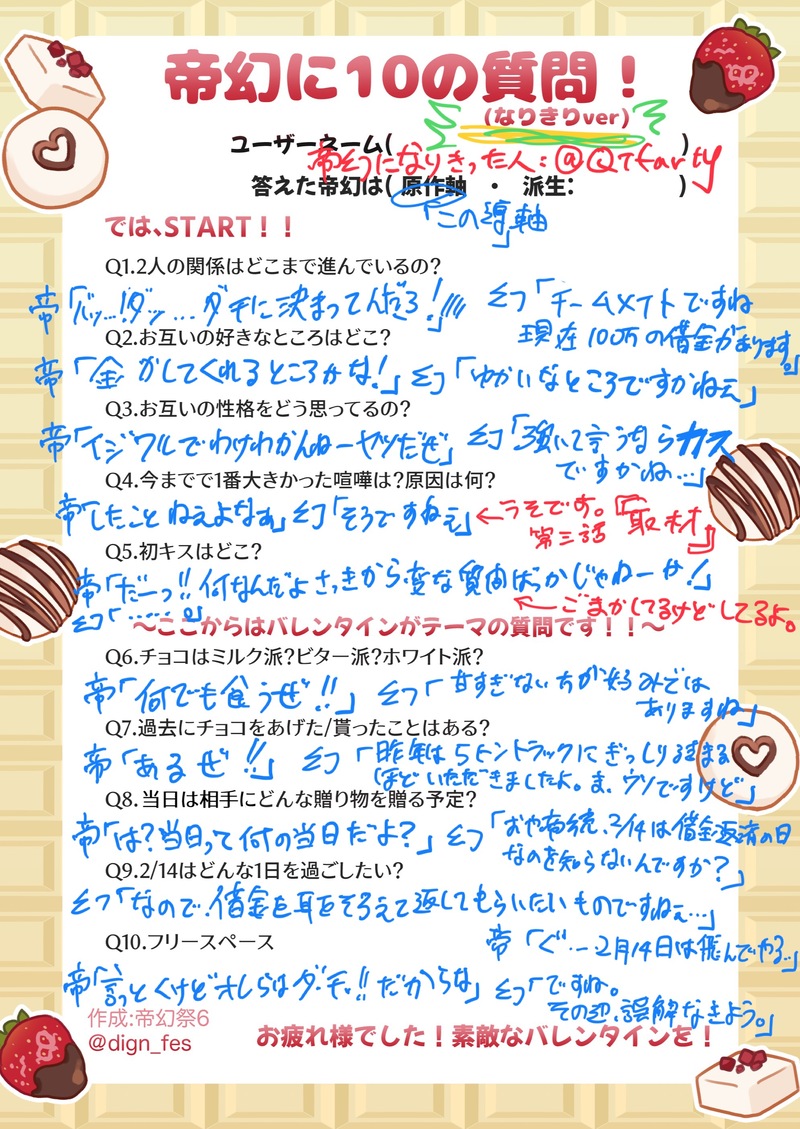 帝幻に10の質問！
(なりきりver)
ユーザーネーム( )
帝幻になりきった人：@QTfarty
答えた帝幻は( 原作軸 ・ 派生: )
「この導軸」
では、START！！
Q1.2人の関係はどこまで進んでいるの？
帝「バッ…！ダッ…ダチに決まってんだろ！」 幻「チームメイトですね
現在100万の借金があります。」
Q2.お互いの好きなところはどこ？
帝「金かしてくれるところかな！」幻「ゆかいなところですかねぇ」
Q3.お互いの性格をどう思ってるの？
帝「イジワルでわけわかんねーヤツだぜ」 幻「強いて言うならカス
ですかね…」
Q4.今までで1番大きかった喧嘩は？原因は何？
帝「したことねえよなぁ」幻「そうですねぇ」←うそです。『取材』
第三話
Q5.初キスはどこ？
帝「だーっ!!何なんだよさっきから変な質問ばっかじゃねーか！」
幻「……。」
←ごまかしてるけどしてるよ。
～ここからはバレンタインがテーマの質問です！！～
Q6.チョコはミルク派？ビター派？ホワイト派？
帝「何でも食うぜ!!」 幻「甘すぎない方が好みでは
ありますね」
Q7.過去にチョコをあげた/貰ったことはある？
帝「あるぜ!!」 幻「昨年は5トントラックにぎっしり詰まる
ほどいただきましたよ。ま、ウソですけど」
Q8.当日は相手にどんな贈り物を贈る予定？
帝「は？当日って何の当日だよ？」幻「おや有統、2/14は借金返済の日
なのを知らないんですか？」
Q9.2/14はどんな1日を過ごしたい？
幻「なので、借金を耳をそろえて返してもらいたいものですねぇ…」
帝「ぐ…2月14日は飛んでやる…」
Q10.フリースペース
帝「言っとくけどオレらはダチ!!だからな」 幻「ですね。
その辺、誤解なきよう。」
作成:帝幻祭6
@dign_fes
お疲れ様でした！素敵なバレンタインを！